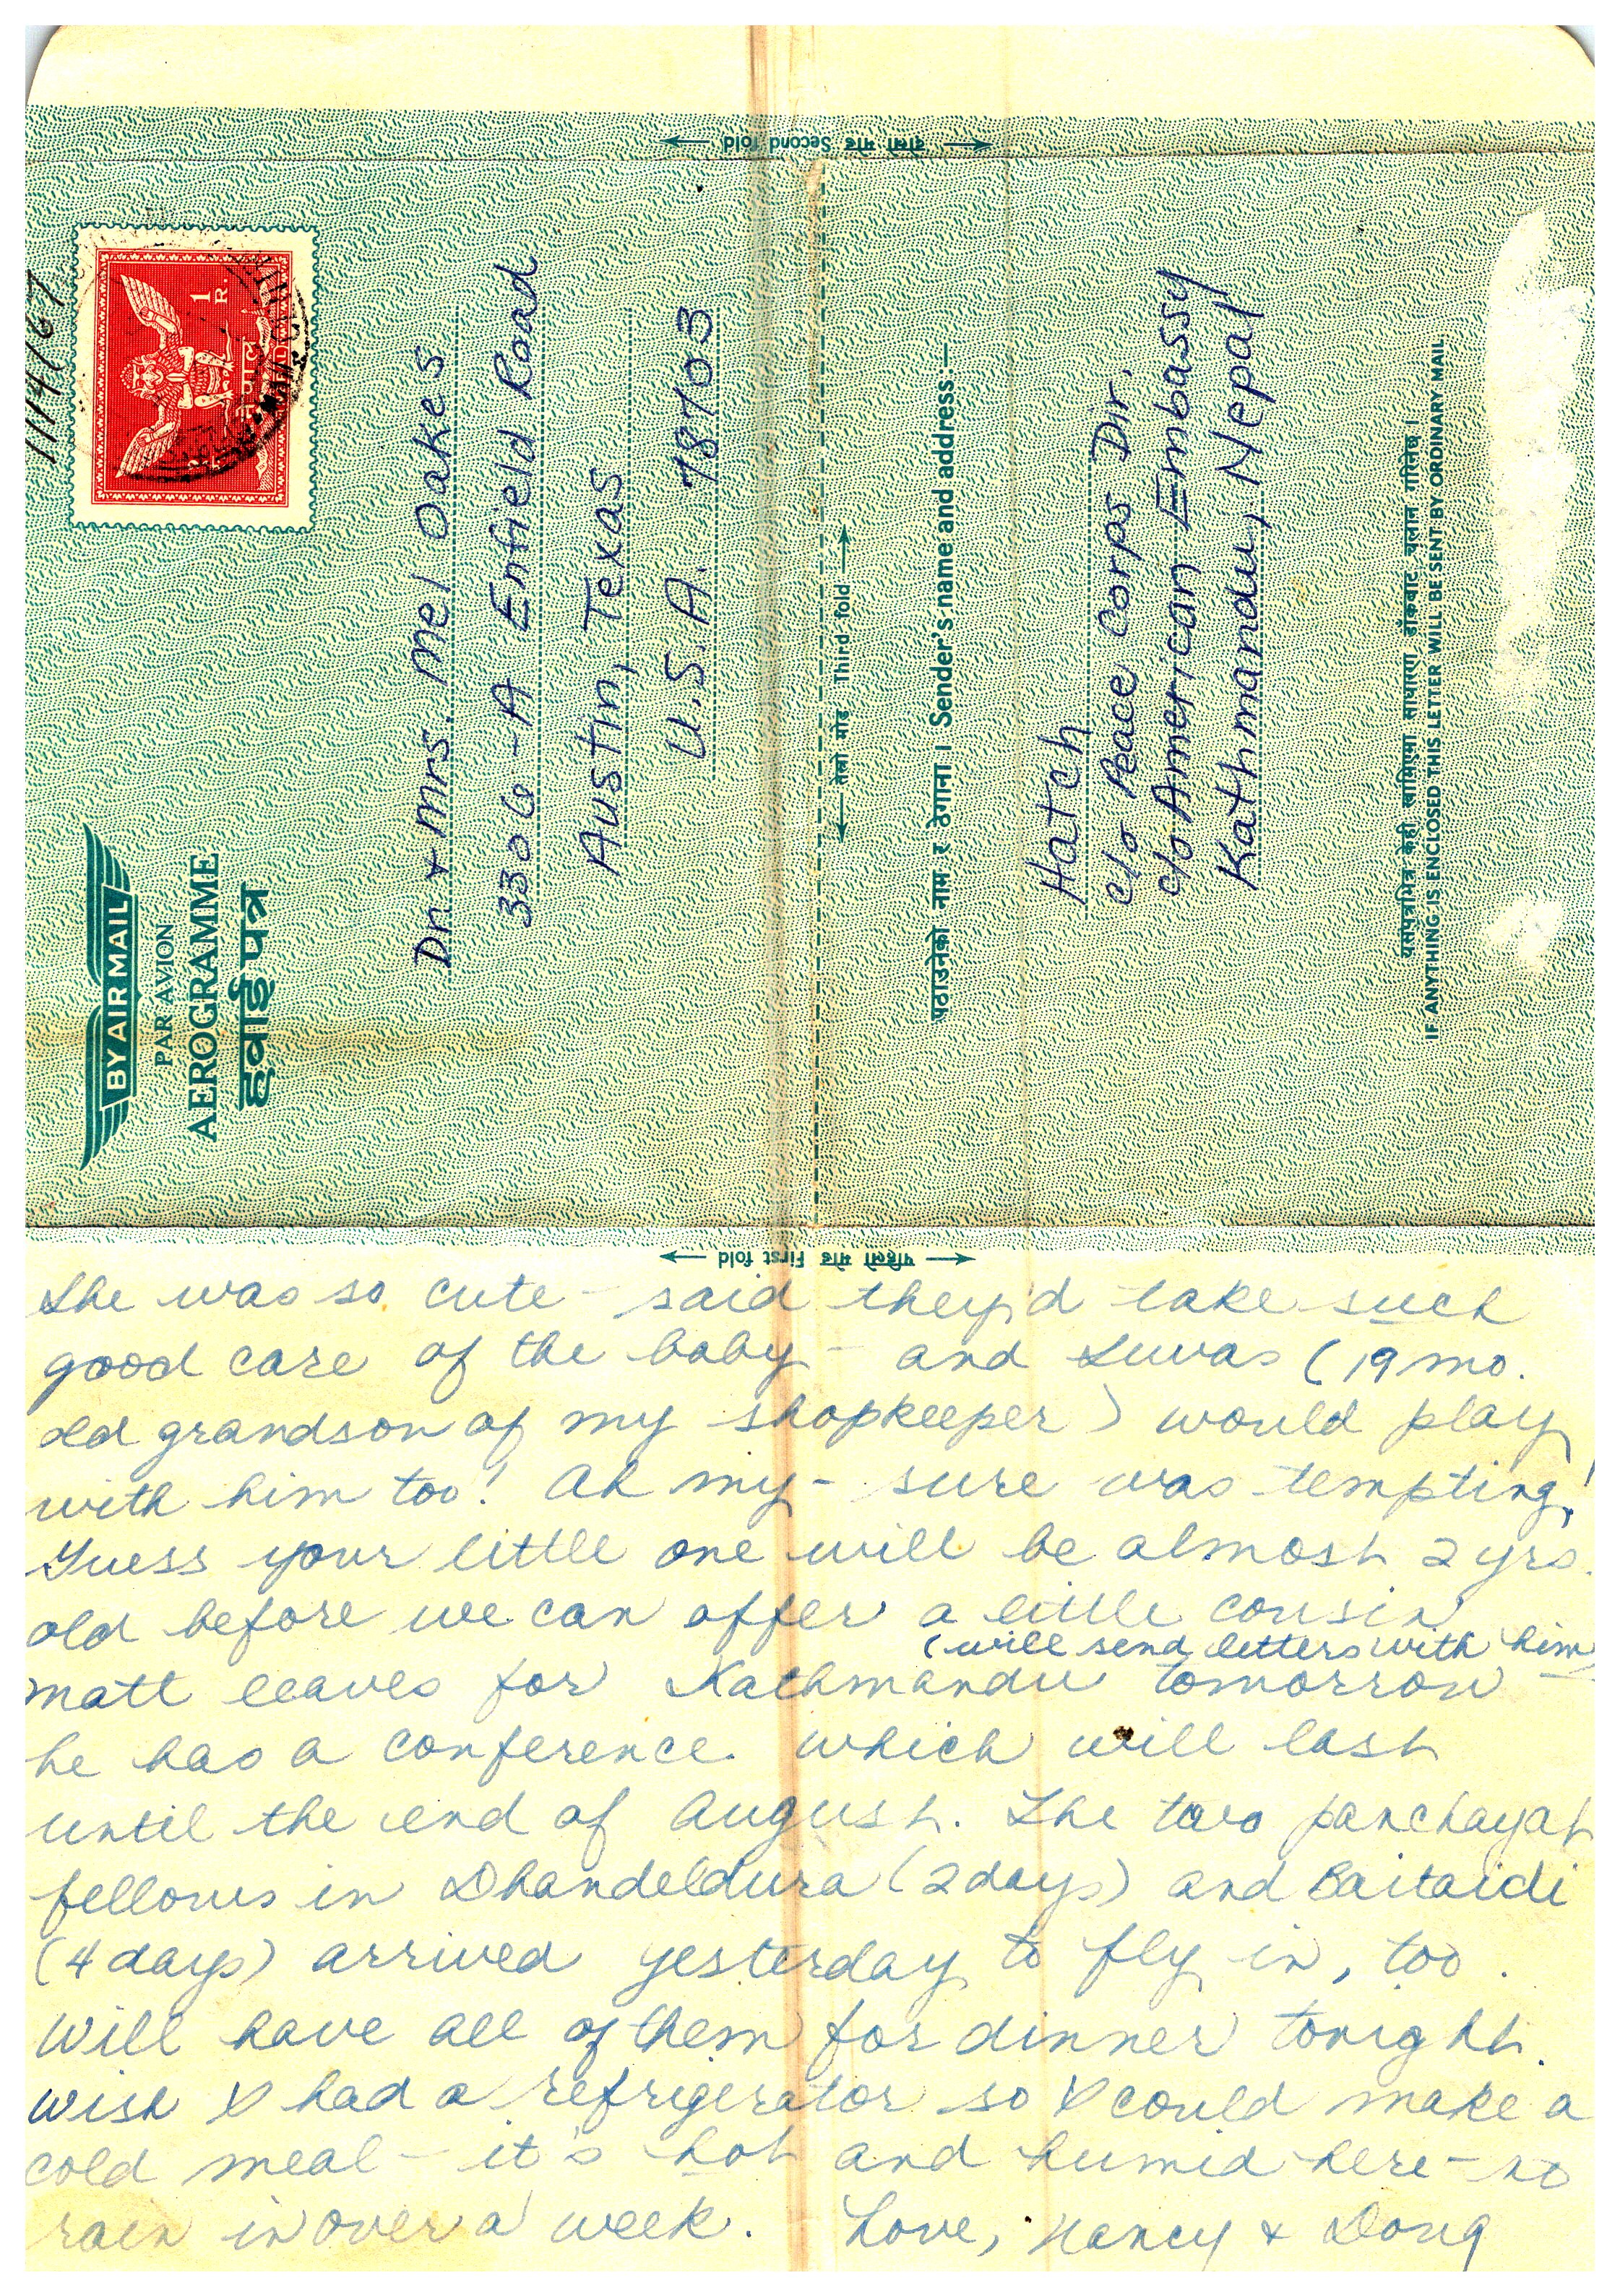 दोस्रो मोड Second fold
1 R.
नेपाल
BY AIR MAIL
PAR AVION
AEROGRAMME
हवाई पत्र
Dr. + Mrs. Mel Oakes
3306-A Enfield Road
Austin, Texas
U.S.A. 78703
तेस्रो मोड Third fold
पठाउनेको नाम र ठेगाना । Sender's name and address:—
Hatch
c/o Peace Corps Dir.
c/o American Embassy
Kathmandu, Nepal
यसपत्रभित्र केही खामिएमा साधारण डाँकबाट चलान गरिनेछ ।
IF ANYTHING IS ENCLOSED THIS LETTER WILL BE SENT BY ORDINARY MAIL
पहिलो मोड First fold
She was so cute - said they'd take such
good care of the baby - and Suvas (19 mo.
old grandson of my shopkeeper) would play
with him too! Ah my - sure was tempting!
Guess your little one will be almost 2 yrs.
old before we can offer a little cousin
(will send letters with him)
Matt leaves for Kathmandu tomorrow -
he has a conference which will last
until the end of August. The two panchayat
fellows in Dhandeldura (2 days) and Baitaidi
(4 days) arrived yesterday to fly in, too.
Will have all of them for dinner tonight.
Wish I had a refrigerator so I could make a
cold meal - it's hot and humid here - no
rain in over a week. Love, Nancy + Doug